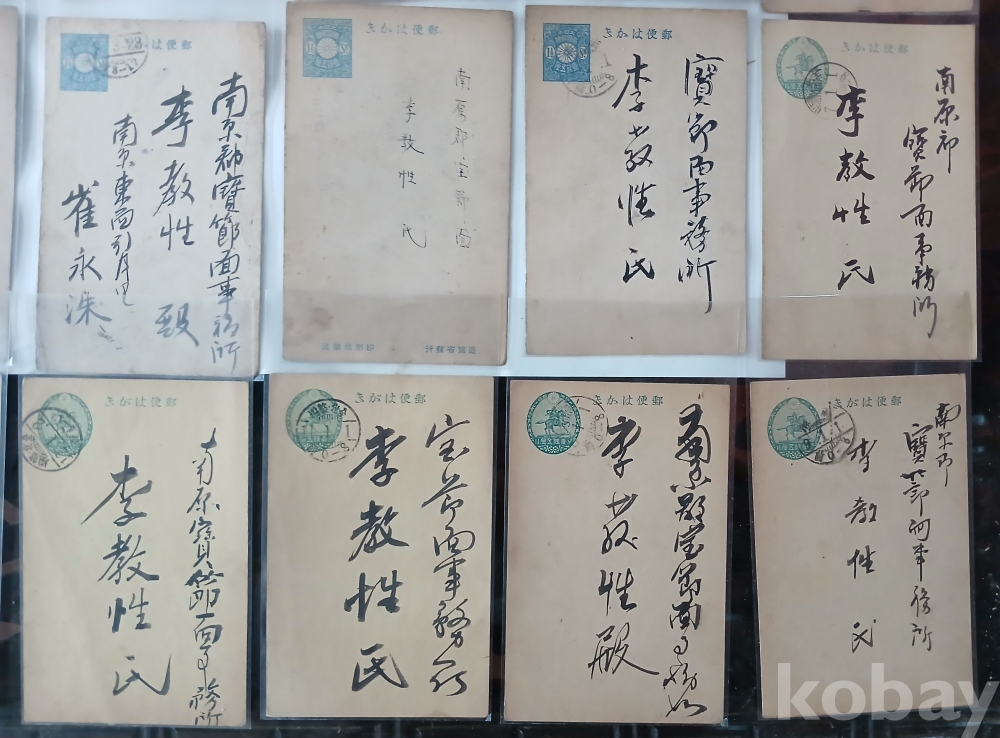 郵便はかき
南原郡寶節面事務所
李教性 殿
南原東面引月里
崔永洙
郵便はかき
南原郡宝節面
李教性氏
郵便はかき
寶節面事務所
李教性氏
郵便はかき
南原郡
寶節面事務所
李教性氏
郵便はかき
南原寶節面事務所
李教性氏
郵便はかき
宝節面事務所
李教性氏
郵便はかき
南原郡宝節面事務所
李教性殿
郵便はかき
南原郡
寶節面事務所
李教性氏
kobay